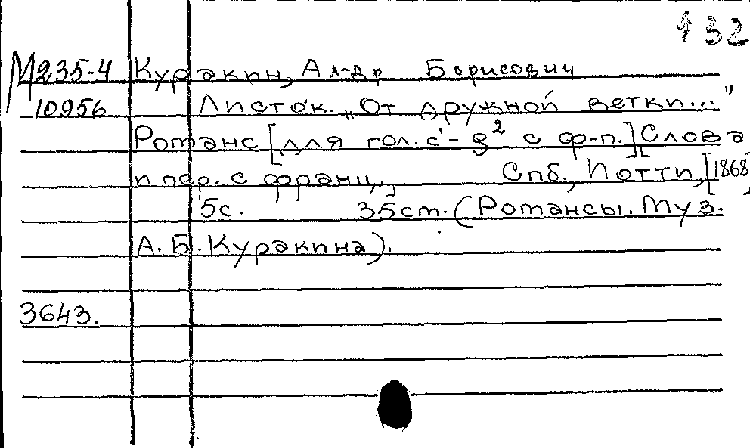 132
М235-4 Куракин, Ал-др Борисович
10956 Листок. „От дружной ветки..."
Романс [для гол. c¹-g² с ф-п.] Слова
и пер. с франц., Спб., Иотти, [1868]
5с. 35см. (Романсы. Муз.
А.Б. Куракина).
3643.